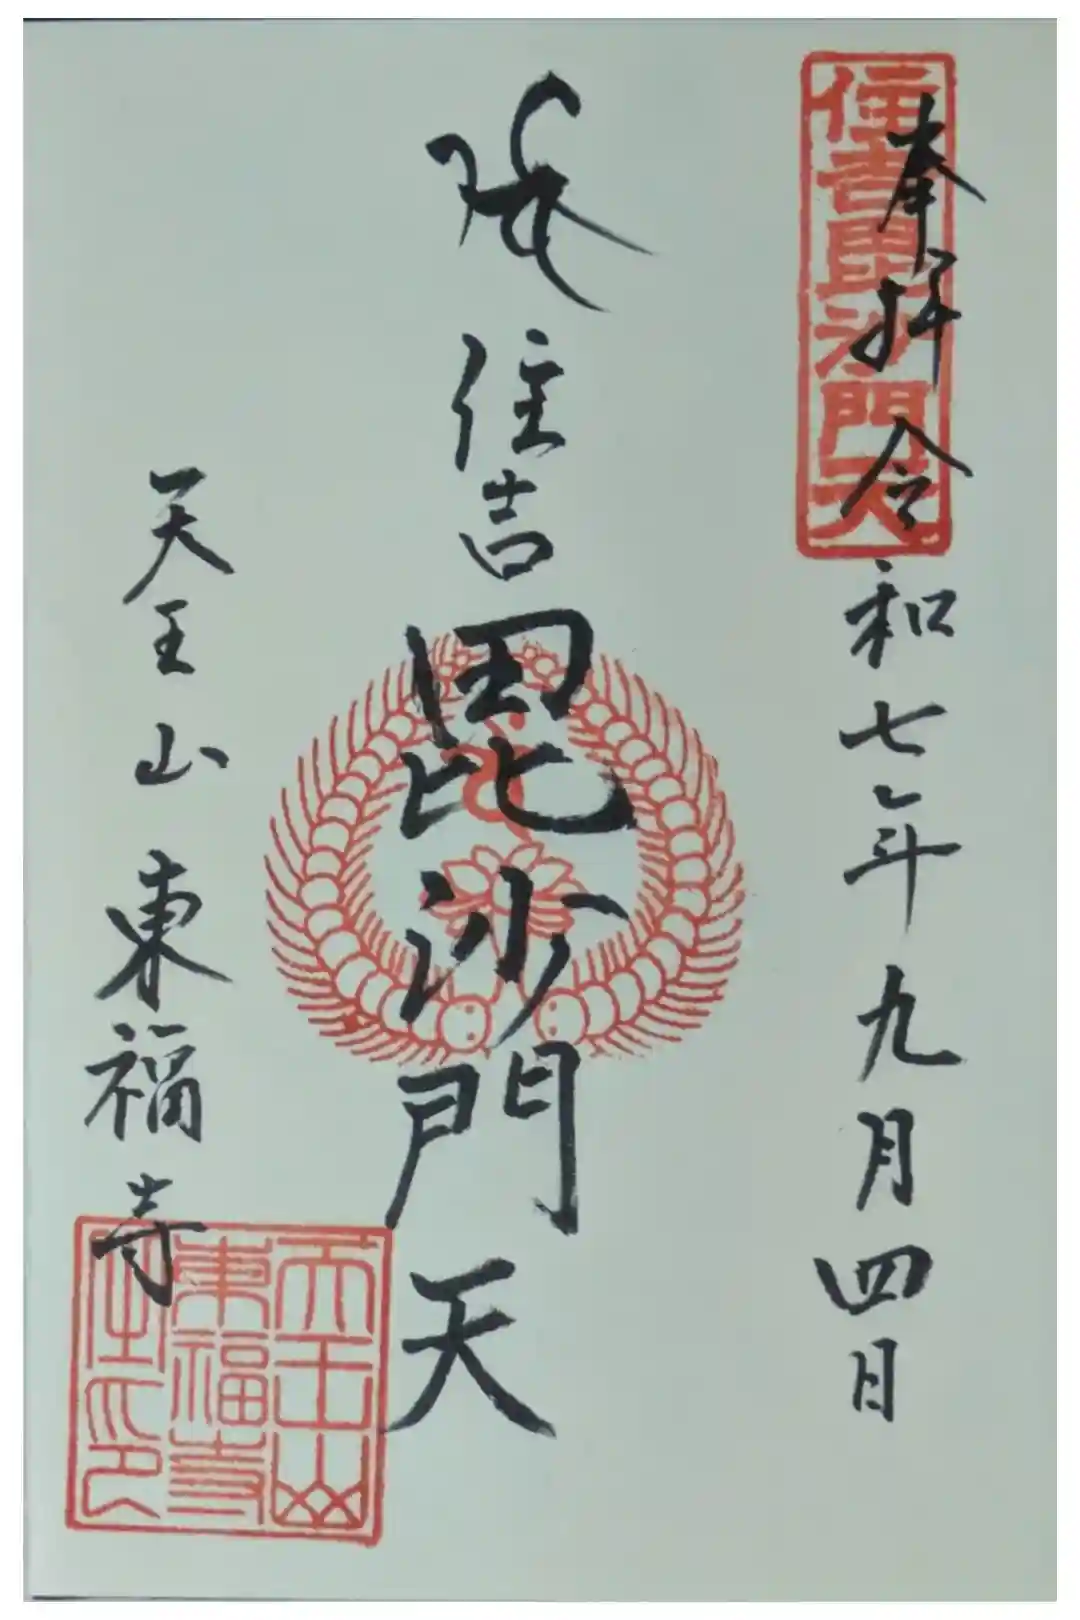 奉拝 令和七年九月四日
住吉毘沙門天
住吉毘沙門天
天王山 東福寺
天王山
東福寺